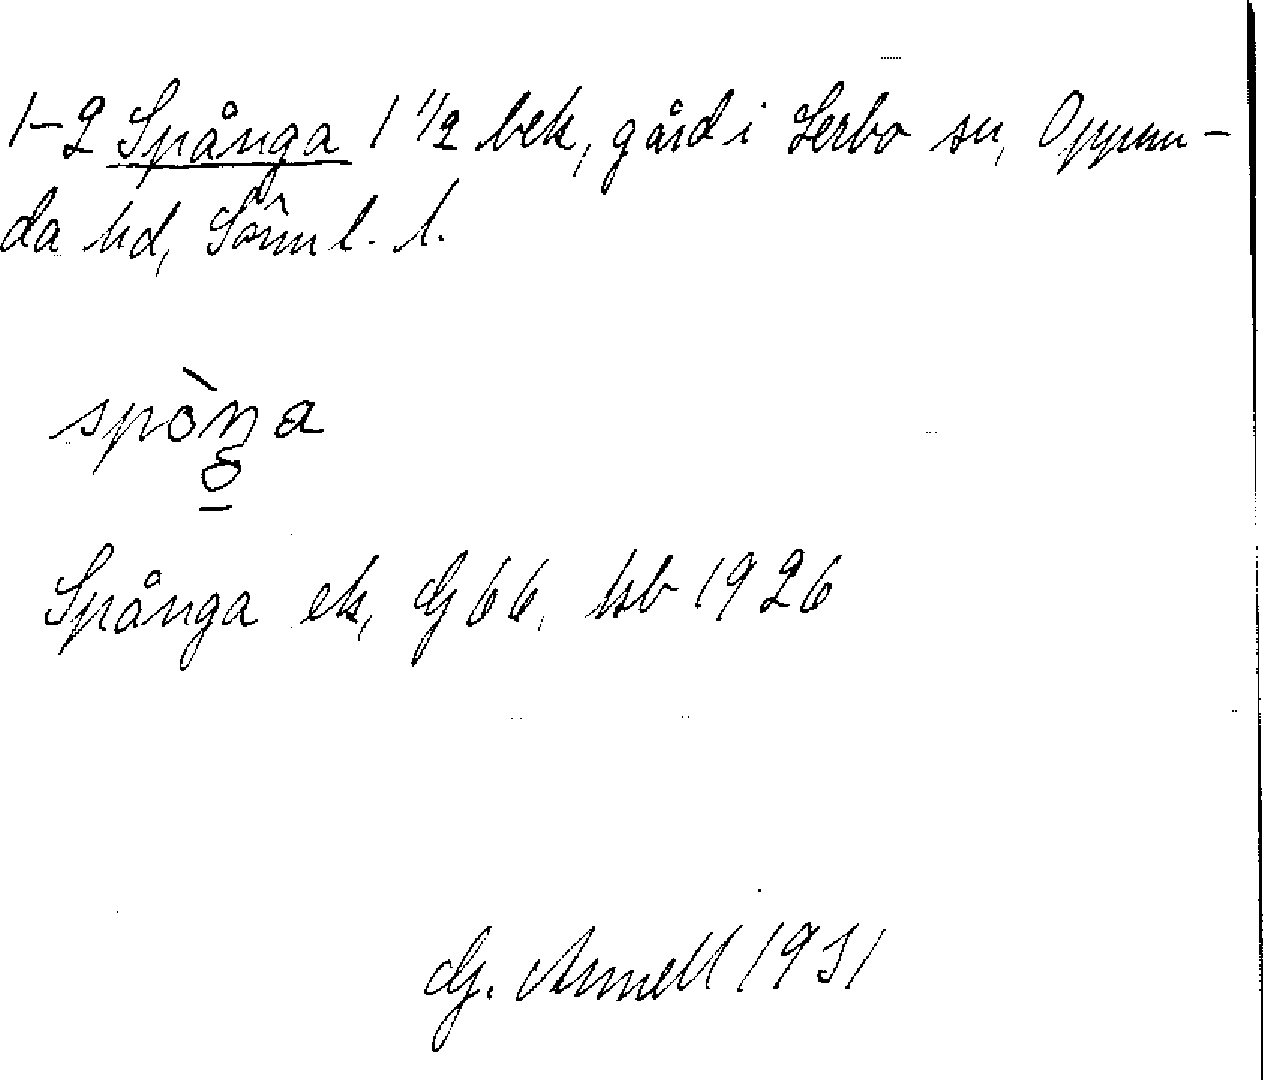 1-2 Spånga 1 1/2 bek, gård i Lerbo sn, Oppun-
da hd, Sörml. l.
spòŋa
Spånga ek, G 66, hsb 1926
G. Arnell 1931